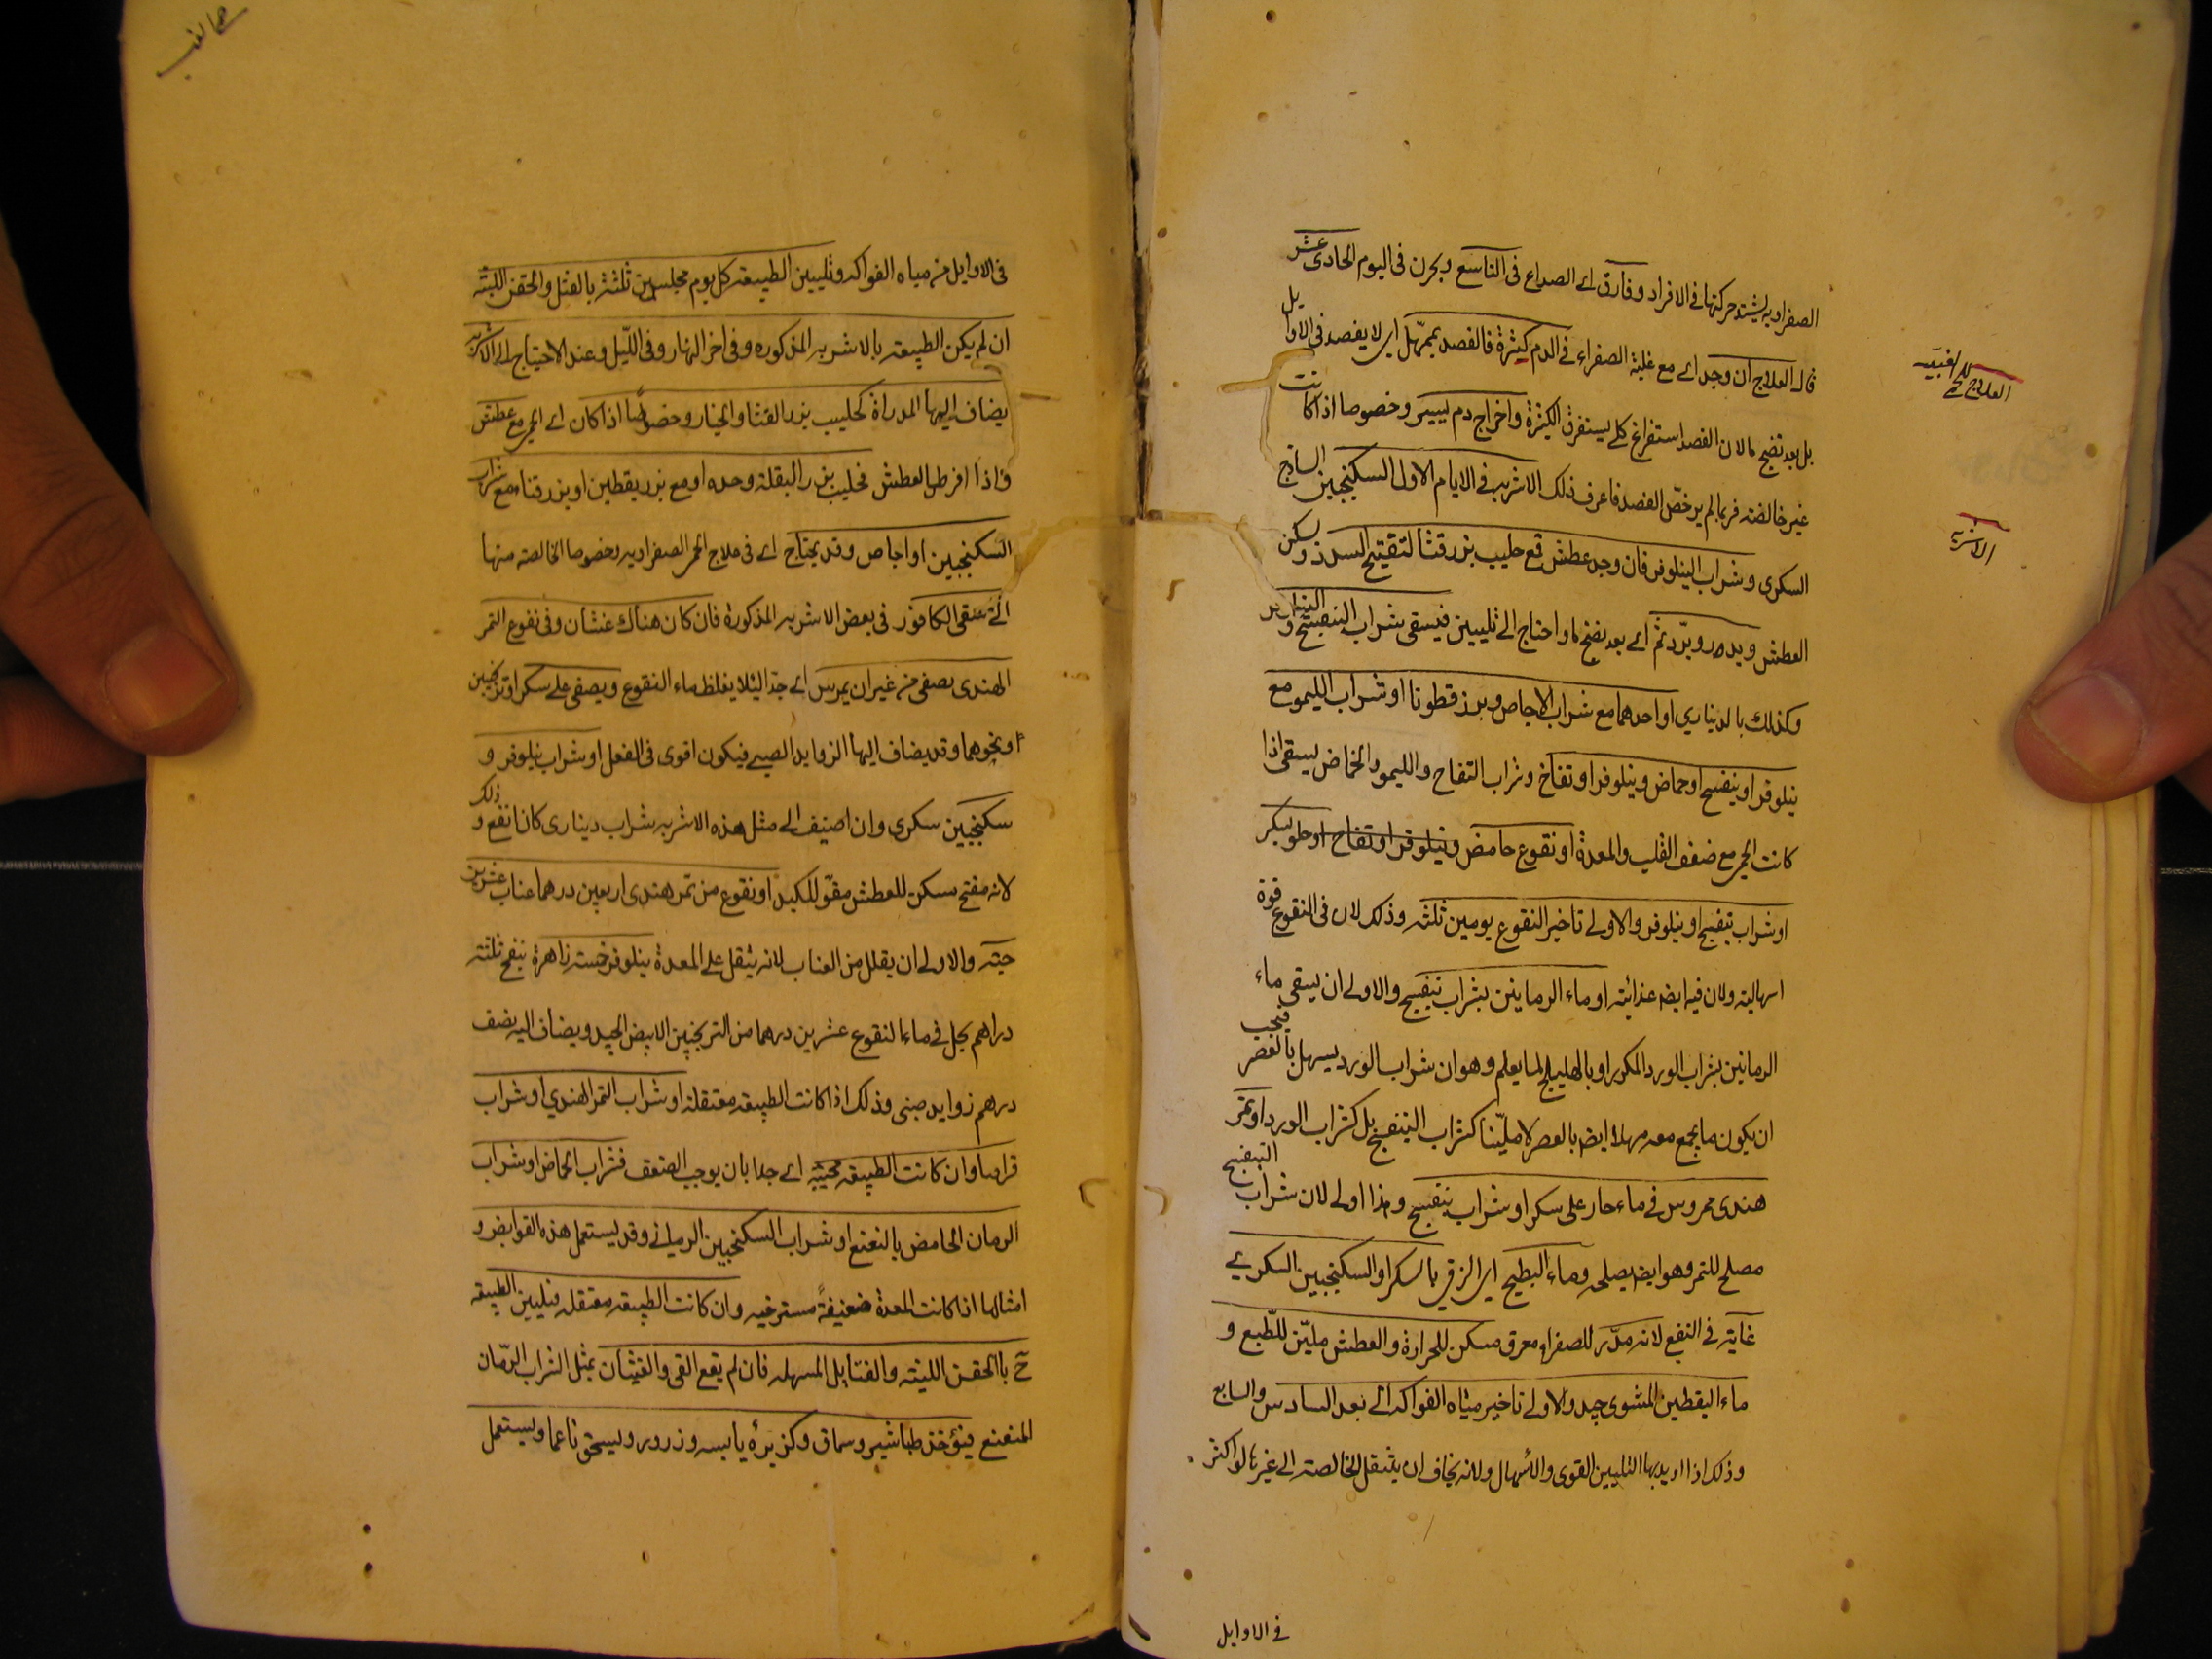 الصفراويه يشتد حركتها في الافراد وفارق اے الصداع في التاسع وبحرن في اليوم الحادى عشر
قال العلاج ان وجد اے مع غلبة الصفراء في الدم كثرة فالفصد بمهل اى لا يفصد في الاوايل
بل بعد نضج ما لان الفصد استفراغ كلے يستفرق الكثرة واخراج دم يسير وخصوصا اذا كانت
غير خالصة فربما لم يرخص الفصد فاعرف ذلك الاشربه في الايام الاول السكنجبين الساذج
السكرى وشراب النيلوفر فان وجد عطش فمع حليب بزر قثا لتفتيح السدد ويسكن
العطش ويدر ويبرد ثم اے بعد نضج ما واحتاج الے تليين فيسقى شراب البنفسج و
وكذلك بالدينارى او احدهما مع شراب الاجاص وبزر قطونا او شراب الليمو مع
نيلوفر او بنفسج او حماض ونيلوفر او تفاح وشراب التفاح والليمو والحماض يسقى اذا
كانت الحمى مع ضعف القلب والمعدة او نقوع حامض ونيلوفر او تفاح او حلو بسكر
او شراب بنفسج او نيلوفر والاولے تاخير النقوع يومين ثلثه وذلك لان في النقوع قوة
اسهالية ولان فيه ايضا غذائية او ماء الرمانين بشراب بنفسج والاولے ان يسقى ماء
الرمانين بشراب الورد المكرر او بالهليلج لما يعلم وهو ان شراب الورد يسهل بالعصر فيجب
ان يكون ما يجمع معه مسهلا ايضا بالعصر لا ملينا كشراب البنفسج بل كشراب الورد او تمر
هندى ممروس في ماء حار على سكر او شراب بنفسج وهذا اولے لان شراب البنفسج
مصلح للتمر وهو ايضا يصلحه وماء البطيخ اى الزقي بالسكر او السكنجبين السكرى
غاية في النفع لانه مدر للصفراء معرق مسكن للحرارة والعطش ملين للطبع و
ماء اليقطين المشوى جيد والاولے تاخير مياه الفواكه الے بعد السادس والسابع
وذلك اذا اريد بها التليين القوى والاسهال ولانه يخاف ان ينتقل الخالصة الے غيرها لو اكثر
في الاوايل
العلاج للحمى الغبية
الاشربه
حمى الغب
في الاوايل من مياه الفواكه وتليين الطبيعة كل يوم مجلسين ثلثة بالفتل والحقن اللينة
ان لم يكن الطبيعة بالاشربه المذكوره وفي اخر النهار وفي الليل وعند الاحتياج الے الاشربه
يضاف اليها المدراة كحليب بزر القثا والخيار وخصوصا اذا كان اے الحمى مع عطش
واذا افرط العطش فحليب بزر البقلة وحده او مع بزر يقطين او بزر قثاء مع شراب
السكنجبين او اجاص وقد يحتاج اے في علاج الحمى الصفراويه وخصوصا الخالصه منها
الے سقى الكافور في بعض الاشربه المذكورة فان كان هناك غثيان وفي نقوع التمر
الهندى يصفى من غير ان يمرس اے جدا لئلا يغلظ ماء النقوع ويصفى على سكر او ترنجبين
او نحوهما وقد يضاف اليها الزوايد الصينى فيكون اقوى في الفعل او شراب نيلوفر و
سكنجبين سكرى وان اضيف الے مثل هذه الاشربه شراب دينارى كان انفع وذلك
لانه مفتح مسكن للعطش مقو للكبد او نقوع من تمر هندى اربعين درهما عناب عشرين
حبة والاولے ان يقلل من العناب لانه يثقل على المعدة نيلوفر خمسة زاهرة بنفسج ثلثة
دراهم يحل في ماء النقوع عشرين درهما من الترنجبين الابيض الجيد ويضاف اليه نصف
درهم زوايد صينى وذلك اذا كانت الطبيعة معتقلة او شراب التمر الهندي او شراب
قراصيا وان كانت الطبيعه مجيبه اے جدا بان يوجب الضعف فشراب الحماض او شراب
الرمان الحامض بالنعنع او شراب السكنجبين الرمانے وقد يستعمل هذه القوابض و
امثالها اذا كانت المعدة ضعيفة مسترخيه وان كانت الطبيعه معتقله فيليين الطبيعه
ح باالحقن اللينه والفتايل المسهله فان لم يقع القى والغثيان بمثل الشراب الرمان
المنعنع فيؤخذ طباشير وسماق وكزبرة يابسه وزرور ويسحق ناعما ويستعمل